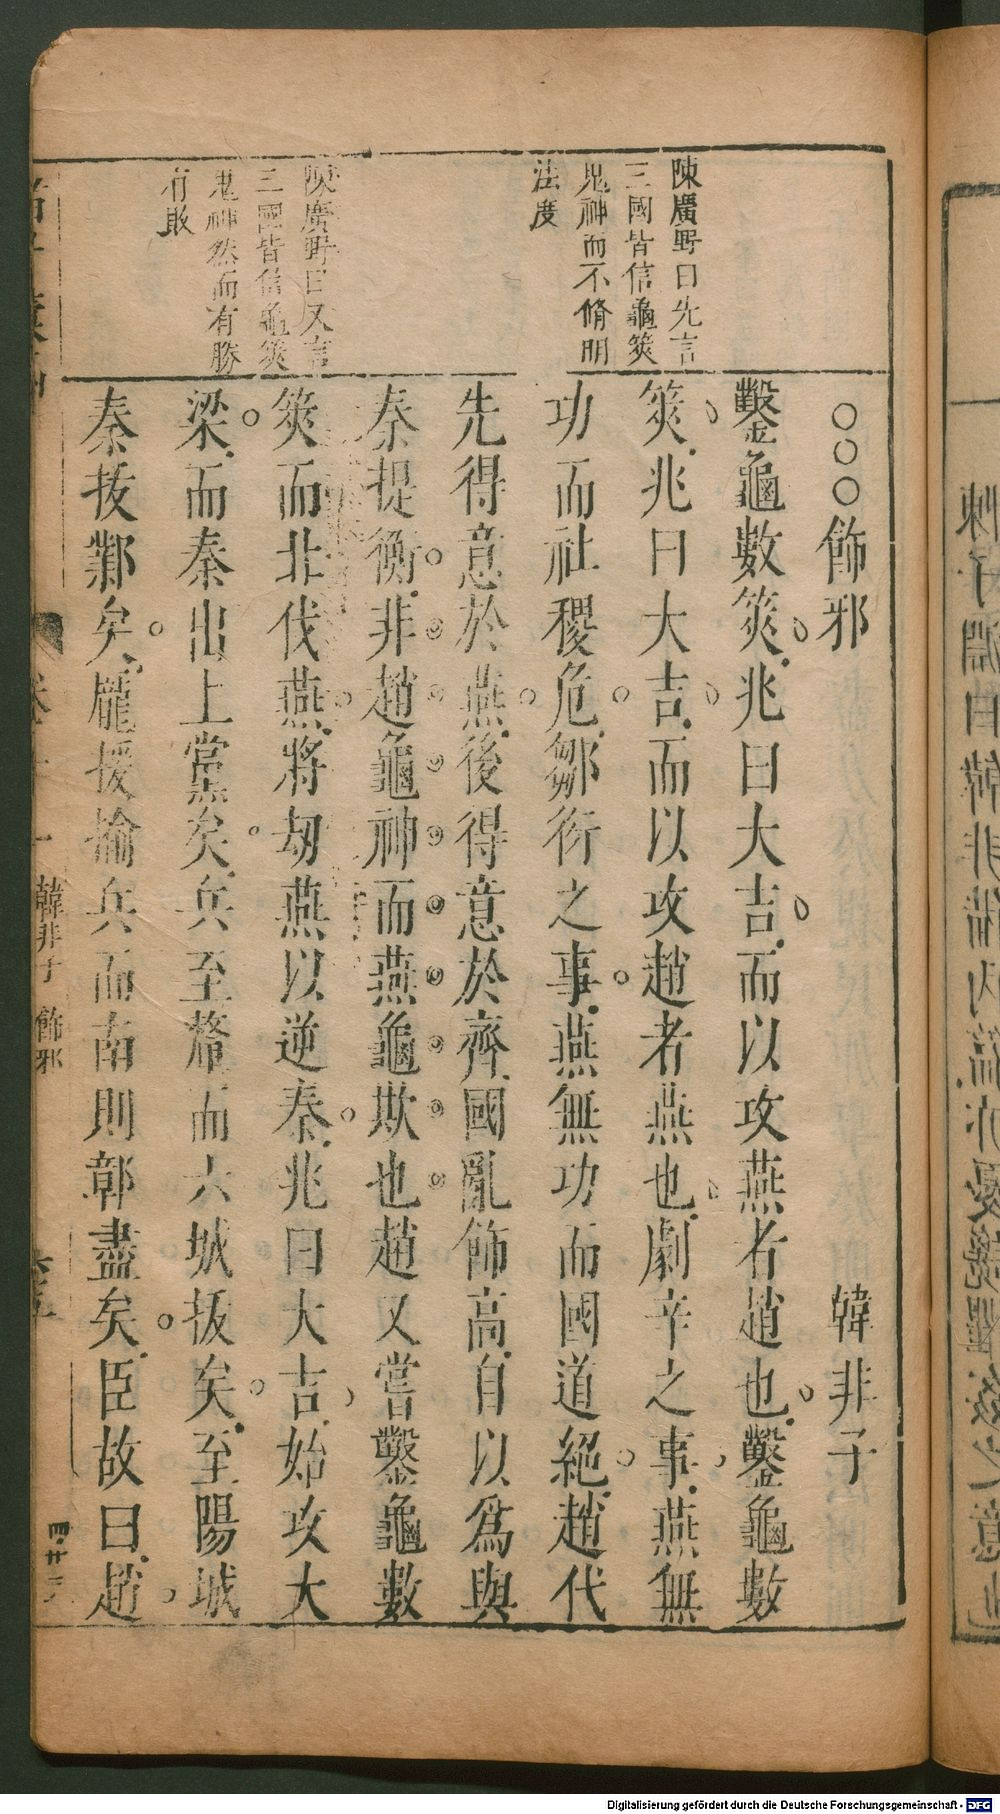 ○○○飾邪　韓非子
鑿龜數筴兆曰大吉而以攻燕者趙也鑿龜數
筴兆曰大吉而以攻趙者燕也劇辛之事燕無
功而社稷危鄒衍之事燕無功而國道絕趙代
先得意於燕後得意於齊國亂飾高自以爲與
秦提衡非趙龜神而燕龜欺也趙又嘗鑿龜數
筴而北伐燕將刼燕以逆秦兆曰大吉始攻大
梁而秦出上黨矣兵至釐而六城拔矣至陽城
秦拔鄴矣龐援揄兵而南則鄣盡矣臣故曰趙
陳廣野曰先言
三國皆信龜筴
鬼神而不脩明
法度
陳廣野曰又言
三國皆信龜筴
鬼神然而有勝
有敗
韓非子 飾邪
四廿三
Digitalisierung gefördert durch die Deutsche Forschungsgemeinschaft - DFG